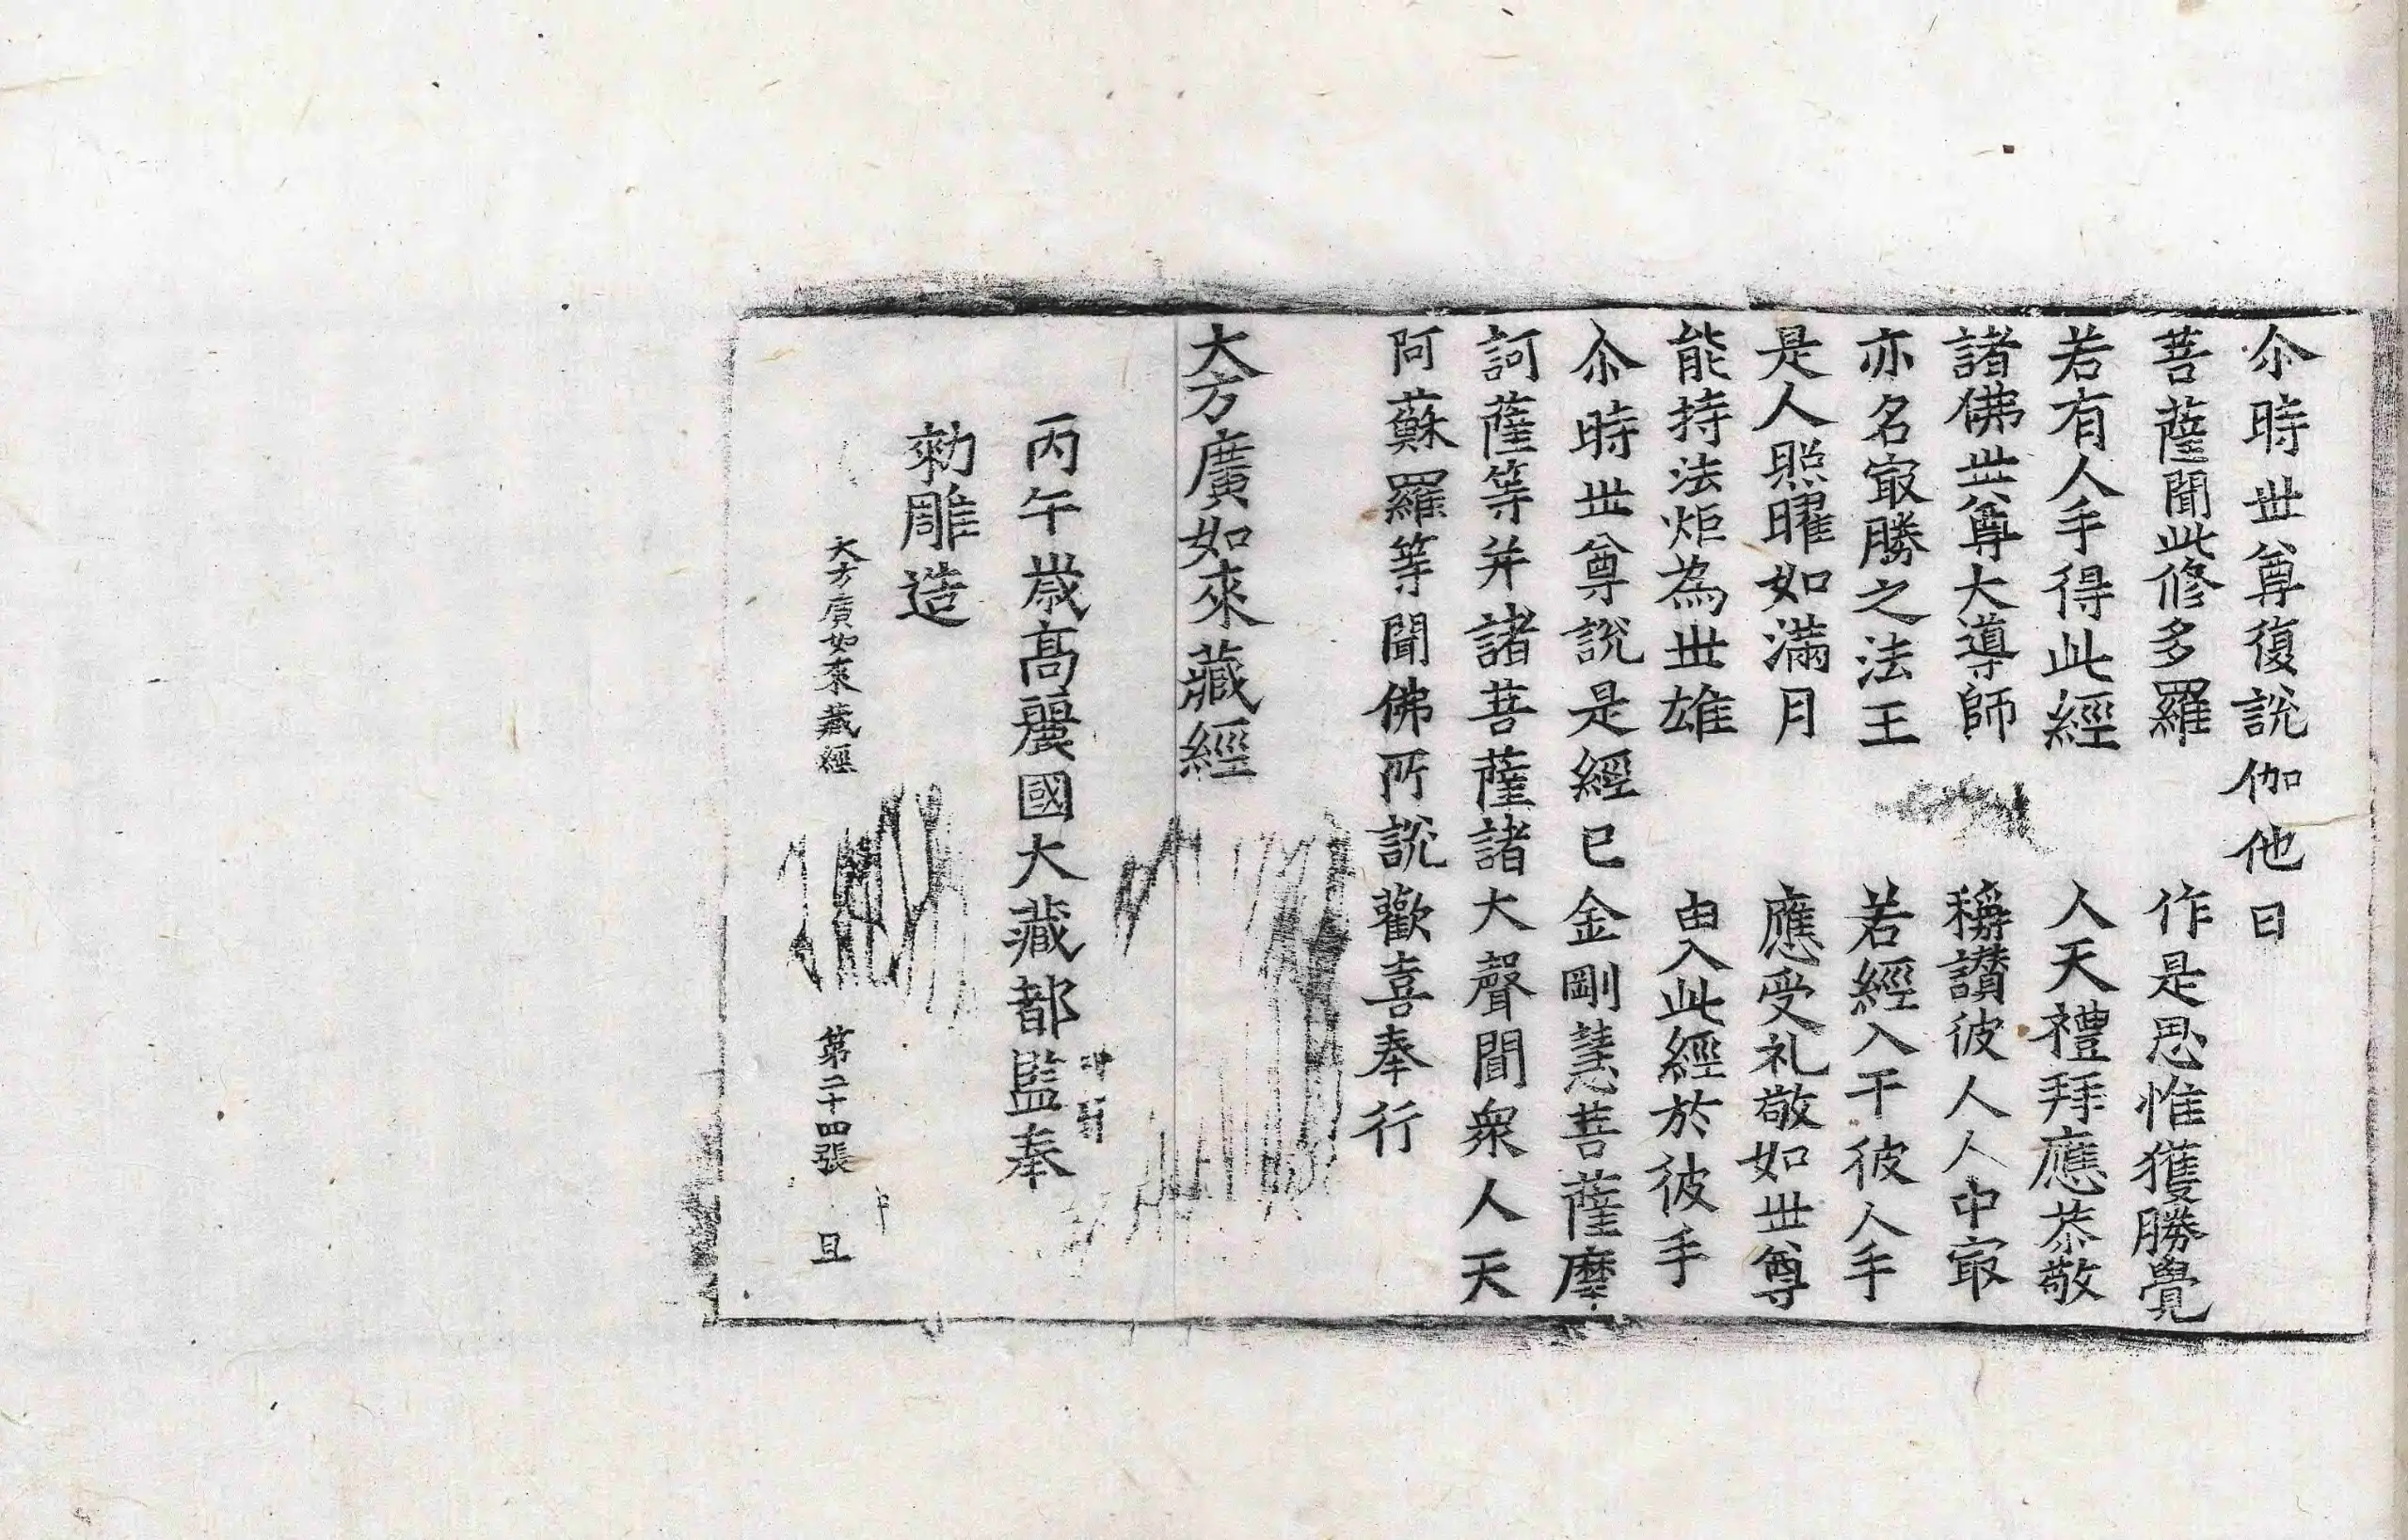 尒時世尊復說伽他曰
菩薩聞此修多羅　作是思惟獲勝覺
若有人手得此經　人天禮拜應恭敬
諸佛世尊大導師　稱讃彼人人中㝡
亦名㝡勝之法王　若經入于彼人手
是人照曜如滿月　應受礼敬如世尊
能持法炬為世雄　由入此經於彼手
尒時世尊說是經已金剛慧菩薩摩
訶薩等并諸菩薩諸大聲聞衆人天
阿蘇羅等聞佛所說歡喜奉行
大方廣如來藏經
丙午歲高麗國大藏都監奉
勑雕造
大方廣如來藏經　第二十四張　且